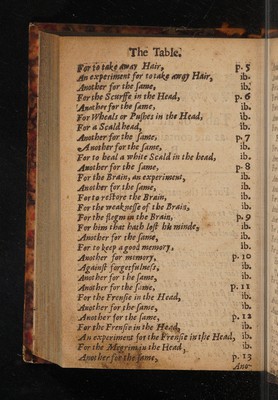 The Table.
For to take away Hair, p. 5
An experiment for to take away Hair, ib.
Another for the same, ib.
For the Scurffe in the Head, p. 6
Another for the same, ib.
For Wheals or Pushes in the Head, ib.
For a Scald head, ib.
Another for the same, p. 7
Another for the same, ib.
For to heal a white Scald in the head, ib.
Another for the same, p. 8
For the Brain, an experiment, ib.
Another for the same, ib.
For to restore the Brain, ib.
For the weaknesse of the Brain, ib.
For the flegm in the Brain, p. 9
For him that hath lost his minde, ib.
Another for the same, ib.
For to keep a good memory, ib.
Another for memory. p. 10
Against forgetfulness, ib.
Another for the same, ib.
Another for the same, p. 11
For the Frensie in the Head, ib.
Another for the same, ib.
Another for the same, p. 12
For the Frensie in the Head, ib.
An experiment for the Frensie in the Head, ib.
For the Megrim in the Head, ib.
Another for the same, p. 13
Ano-